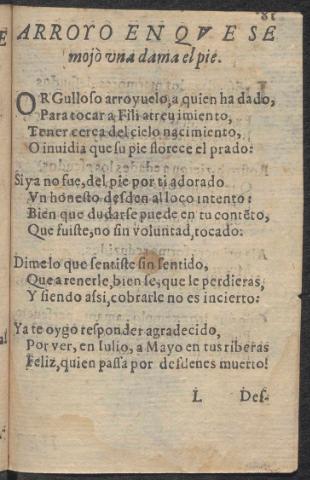 81
ARROYO EN QVE SE
mojò vna dama el pie.
ORGulloso arroyuelo, a quien ha dado,
Para tocar a Fili atreuimiento,
Tener cerca del cielo nacimiento,
O inuidia que su pie florece el prado:
Si ya no fue, del pie por ti adorado
Vn honesto desden al loco intento:
Bien que dudarse puede en tu contẽto,
Que fuiste, no sin voluntad, tocado:
Dimelo que sentiste sin sentido,
Que a tenerle, bien se, que le perdieras,
Y siendo assi, cobrarle no es incierto:
Ya te oygo responder agradecido,
Por ver, en Iulio, a Mayo en tus riberas
Feliz, quien passa por desdenes muerto!
L Des-